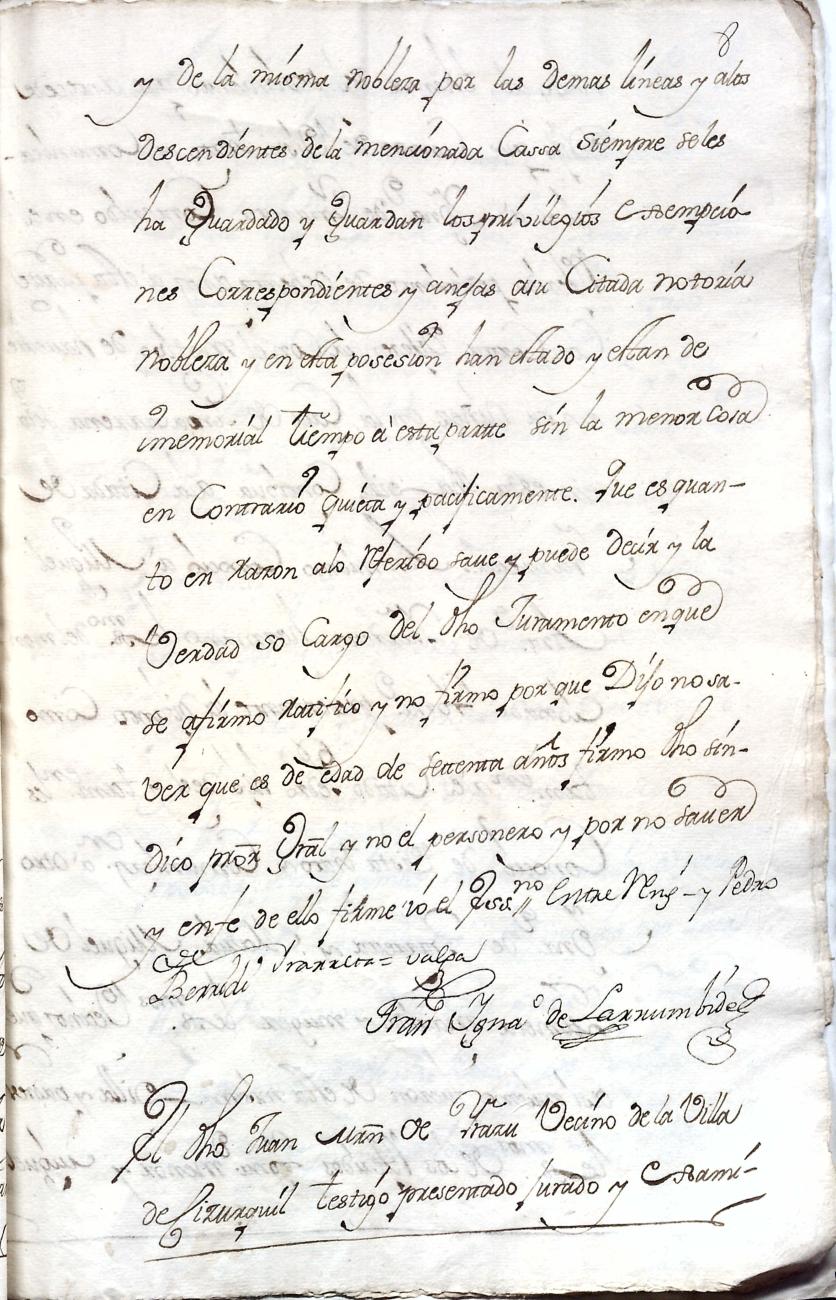 8
y de la misma nobleza por las demas lineas y a los
descendientes de la mencionada Cassa siempre se les
ha Guardado y Guardan los privilegios Exsempcio
nes Correspondientes y anejas a su Citada notoria
nobleza y en esta posesion han estado y estan de
imemorial tiempo à esta partte sin la menor cosa
en Contrario quieta y pacificamente. Que es quan-
to en razon a lo referido save y puede decir y la
Verdad so Cargo del dho Juramento en que
se afirmo ratifico y no firmo por que Dijo no sa-
ver que es de edad de settenta años firmo dho sin-
dico pror Gral y no el personero y por no saver
y en fe de ello firme io el Essno Entre Reng- y Pedro
Berridi Irarreta = valga
Fran Ignao de Larrumbide
El dho Juan Mrn de Vecino de la Villa
de Cizurquil testigo presentado jurado y Exsami-